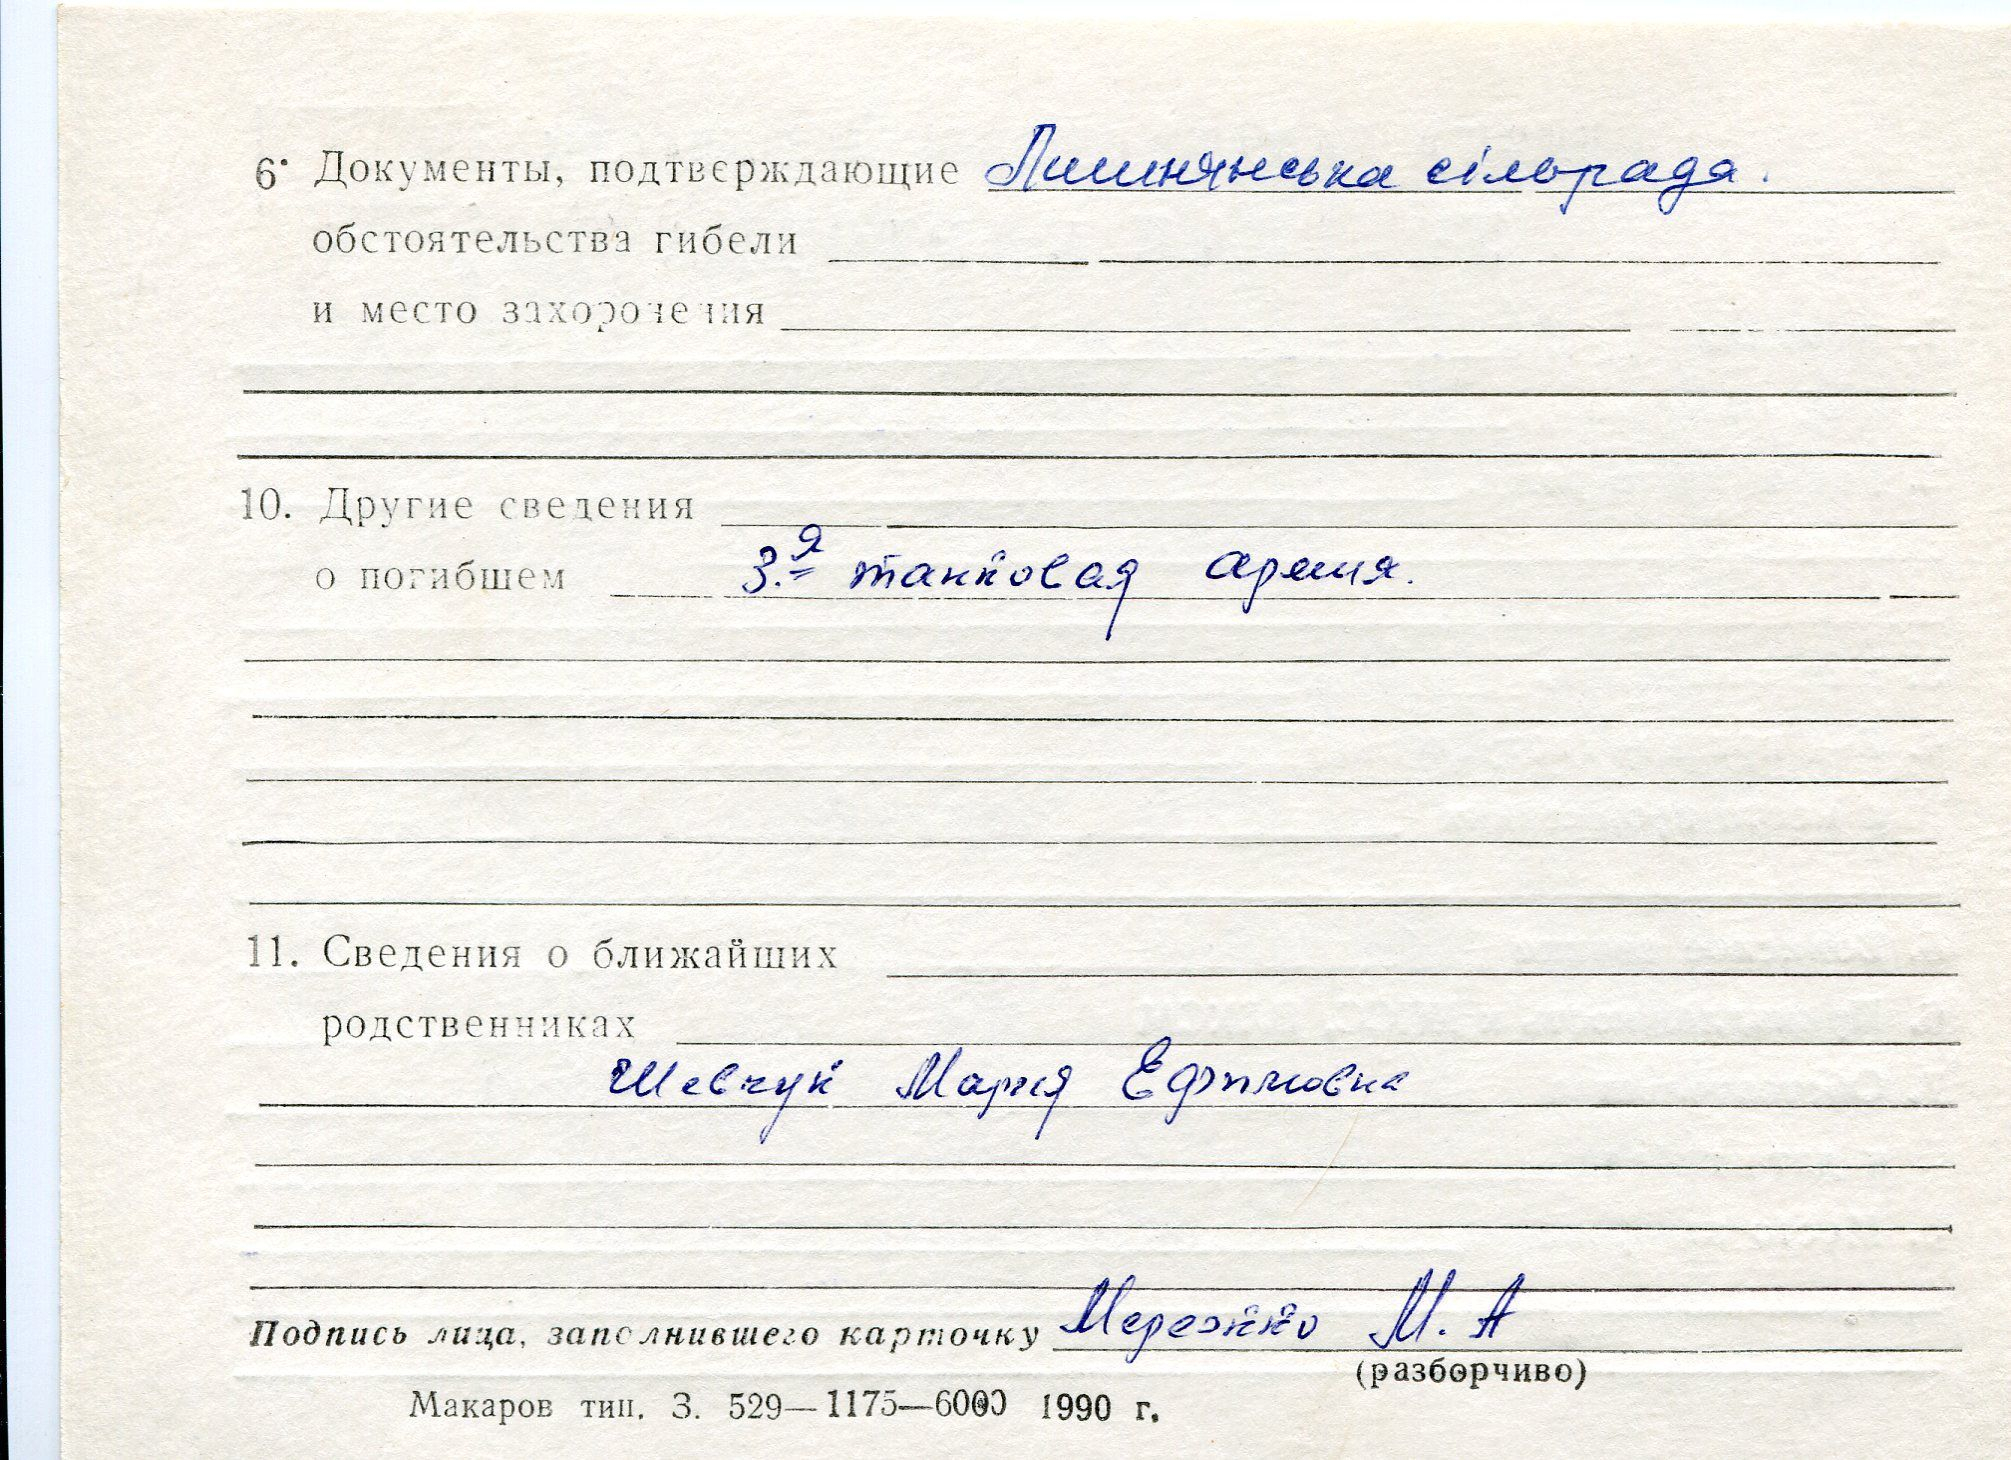 6. Документы, подтверждающие Лишнянська сільрада.
обстоятельства гибели
и место захоронения
10. Другие сведения
о погибшем 3.я танковая армия.
11. Сведения о ближайших
родственниках
Шевчук Мария Ефимовна
Подпись лица, заполнившего карточку Мережко М. А
(разборчиво)
Макаров тип. З. 529—1175—6000 1990 г.